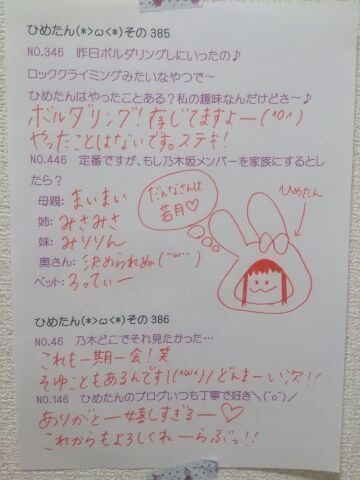 ひめたん(*>ω<*)その 385
NO.346 昨日ボルダリングしにいったの♪
ロッククライミングみたいなやつで〜
ひめたんはやったことある？私の趣味なんだけどさ〜♪
ボルダリング！存じてますよー(^o^)
やったことはないです。ステキ！
NO.446 定番ですが、もし乃木坂メンバーを家族にするとし
たら？
母親: まいまい
姉: みさみさ
妹: みりりん
奥さん: 決められぬ(¨)
ペット: ろってぃー
だんなさんは
若月♡
ひめたん
ひめたん(*>ω<*)その 386
NO.46 乃木どこでそれ見たかった…
これも一期一会！笑
そゆこともあるんです！(^w^)/どんまーい次！！
NO.146 ひめたんのブログいつも丁寧で好き＼(^o^)／
ありがとー嬉しすぎるー♡
これからもよろしくねーらぶっ！！